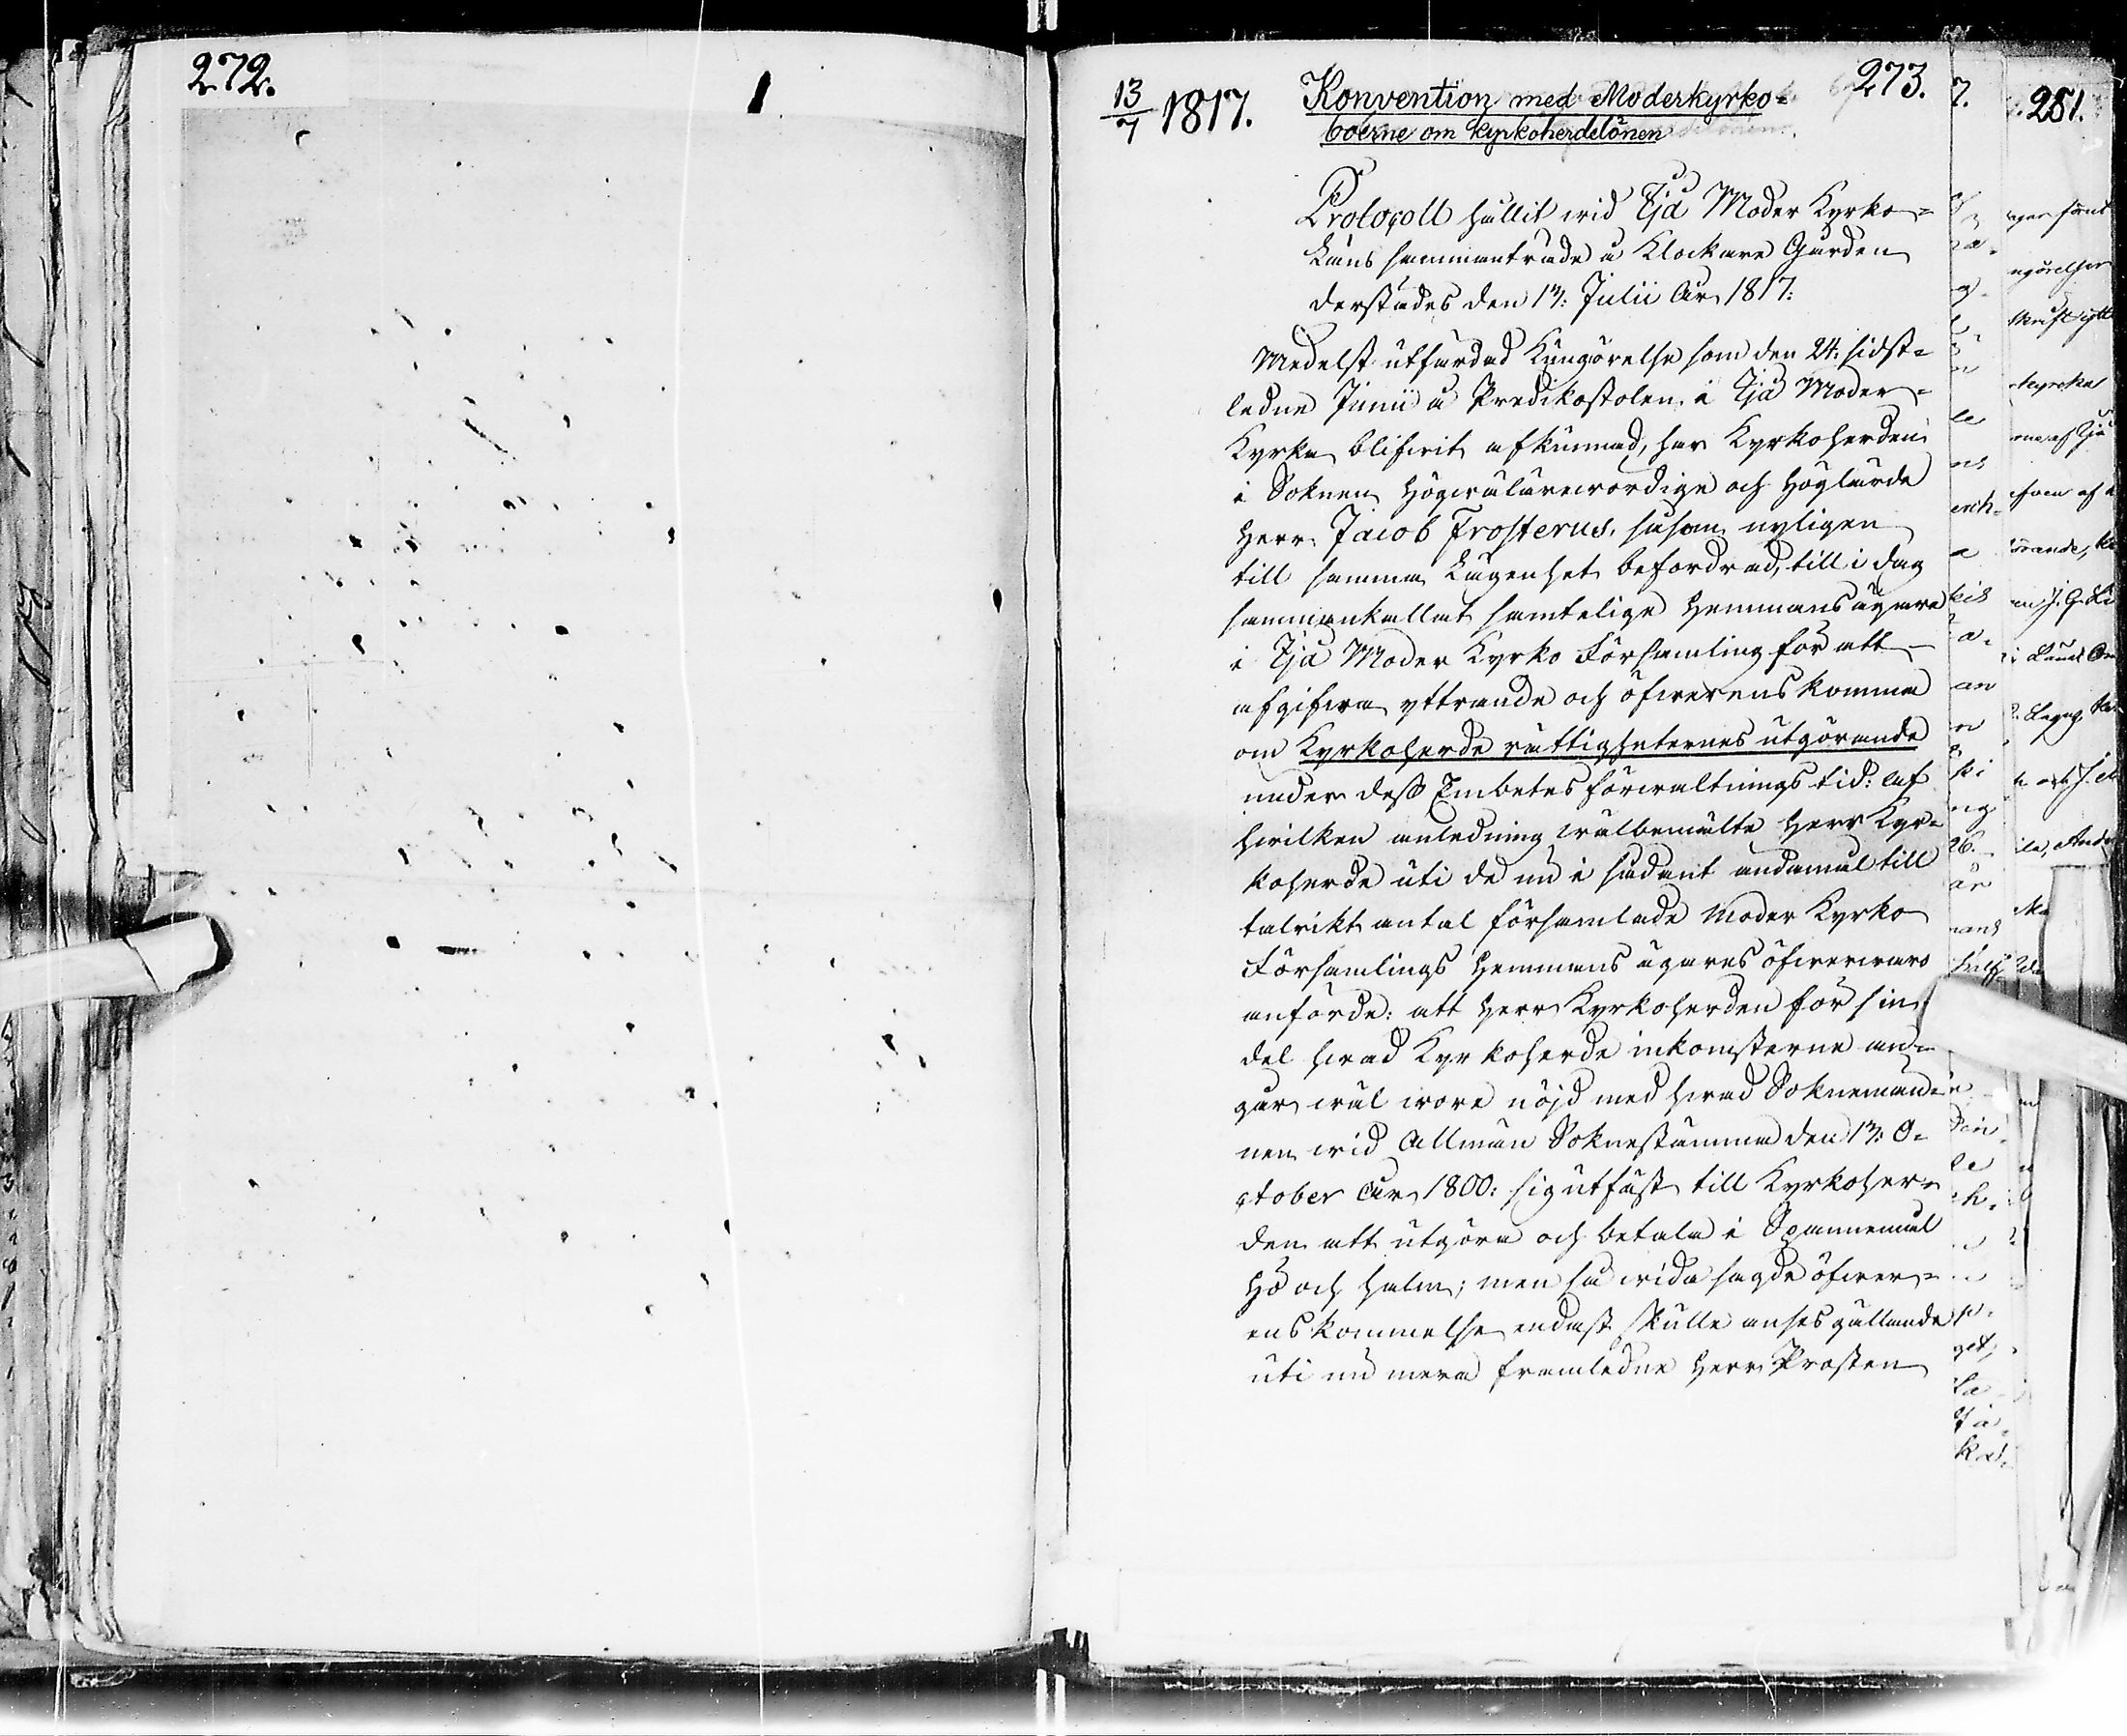 272.
273.
13/7 1817. Konvention med Moderkyrko=
boerne om kyrkoherdelönen
Protocoll hållit wid Ijå Moder Kyrko=
Läns sammanträde å Klockare Gården
derstädes den 13: Julii År 1817:
Medelst utfärdad Kungörelse som den 24. sidst=
ledne Junii å Predikostolen i Ijå Moder=
Kyrka blifwit afkunnad, har Kyrkoherden
i Soknen Högwälärewördige och Höglärde
Herr Jacob Frosterus, såsom nyligen
till samma Lägenhet befordrad, till i dag
sammankallat samtelige Hemmans ägare
i Ijå Moder Kyrko Församling för att
afgifwa yttrande och öfwerenskomma
om Kyrkoherde rättigheternes utgörande
under dess Embetes förwaltnings tid: Af
hwilken anledning wälbemälte Herr Kyr=
koherde uti de nu i sådant ändamål till
talrikt antal församlade Moder Kyrko
Församlings Hemmans ägares öfwerwaro
anförde: att Herr Kyrkoherden för sin
del hwad Kyrkoherde inkomsterne an=
går wäl wore nöjd med hwad Soknemän=
nen wid Allmän Soknestämma den 13: O=
ctober År 1800: sig utfäst till Kyrkoher=
den att utgöra och betala i Spannemål
Hö och halm; men så wida sagde öfwer=
enskommelse endast skulle anses gällande
uti nu mera framledne Herr Prosten
7.
281.